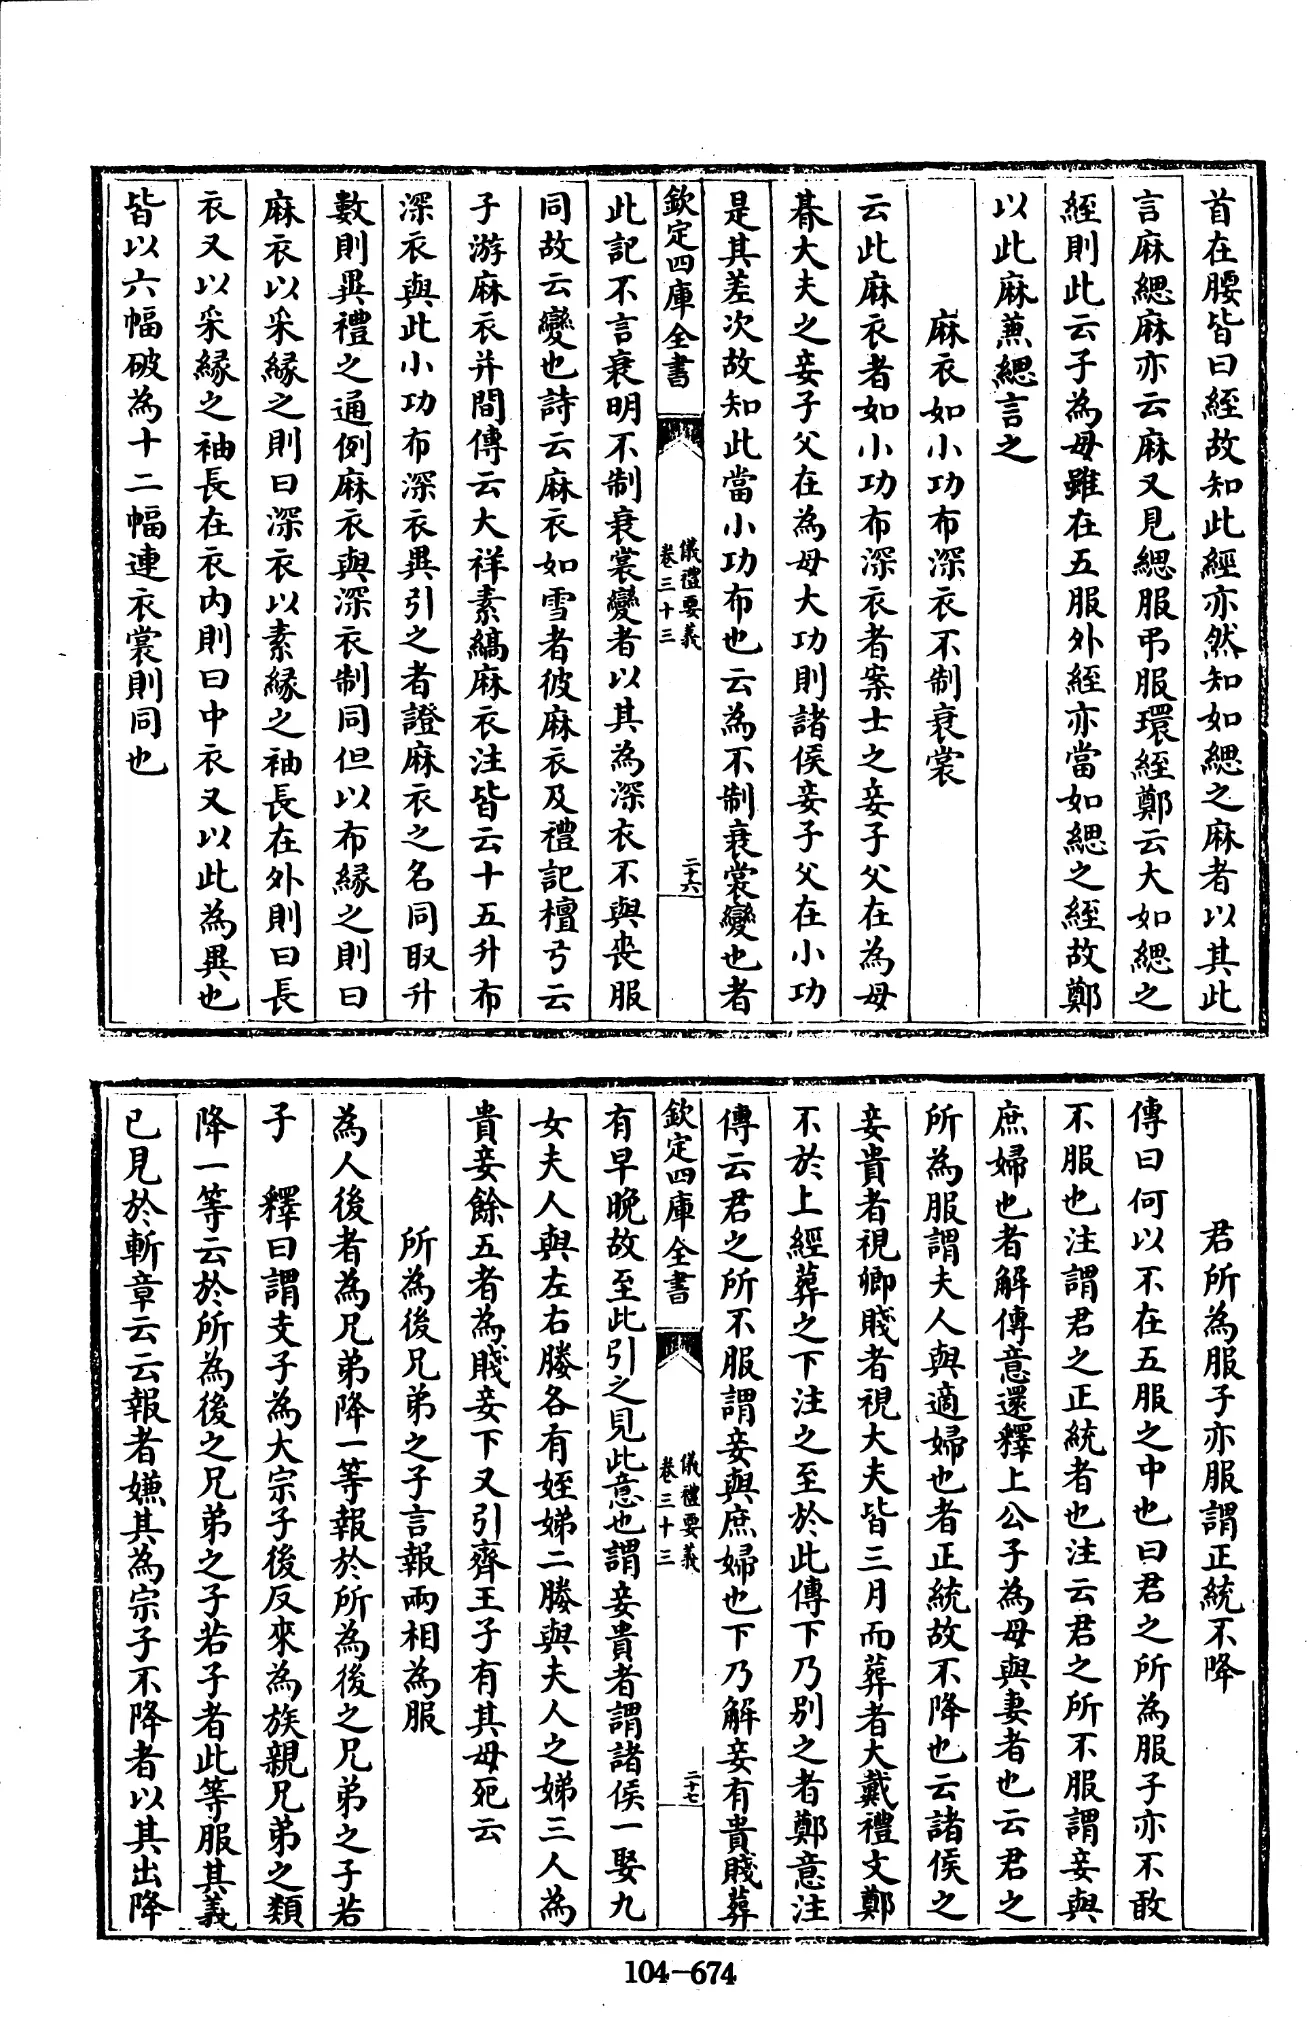 首在腰皆曰絰故知此經亦然知如緦之麻者以其此
言麻緦麻亦云麻又見緦服弔服環絰鄭云大如緦之
絰則此云子為母雖在五服外絰亦當如緦之絰故鄭
以此麻兼緦言之
麻衣如小功布深衣不制衰裳
云此麻衣者如小功布深衣者案士之妾子父在為母
朞大夫之妾子父在為母大功則諸侯妾子父在小功
是其差次故知此當小功布也云為不制衰裳變也者
欽定四庫全書
儀禮要義
卷三十三
二十六
此記不言衰明不制衰裳變者以其為深衣不與喪服
同故云變也詩云麻衣如雪者彼麻衣及禮記檀弓云
子游麻衣并間傳云大祥素縞麻衣注皆云十五升布
深衣與此小功布深衣異引之者證麻衣之名同取升
數則異禮之通例麻衣與深衣制同但以布緣之則曰
麻衣以采緣之則曰深衣以素緣之袖長在外則曰長
衣又以采緣之袖長在衣內則曰中衣又以此為異也
皆以六幅破為十二幅連衣裳則同也
君所為服子亦服謂正統不降
傳曰何以不在五服之中也曰君之所為服子亦不敢
不服也注謂君之正統者也注云君之所不服謂妾與
庶婦也者解傳意還釋上公子為母與妻者也云君之
所為服謂夫人與適婦也者正統故不降也云諸侯之
妾貴者視卿賤者視大夫皆三月而葬者大戴禮文鄭
不於上經葬之下注之至於此傳下乃別之者鄭意注
傳云君之所不服謂妾與庶婦也下乃解妾有貴賤葬
欽定四庫全書
儀禮要義
卷三十三
二十七
有早晚故至此引之見此意也謂妾貴者謂諸侯一娶九
女夫人與左右媵各有姪娣二媵與夫人之娣三人為
貴妾餘五者為賤妾下又引齊王子有其母死云
所為後兄弟之子言報兩相為服
為人後者為兄弟降一等報於所為後之兄弟之子若
子　釋曰謂支子為大宗子後反來為族親兄弟之類
降一等云於所為後之兄弟之子若子者此等服其義
已見於斬章云云報者嫌其為宗子不降者以其出降
104-674